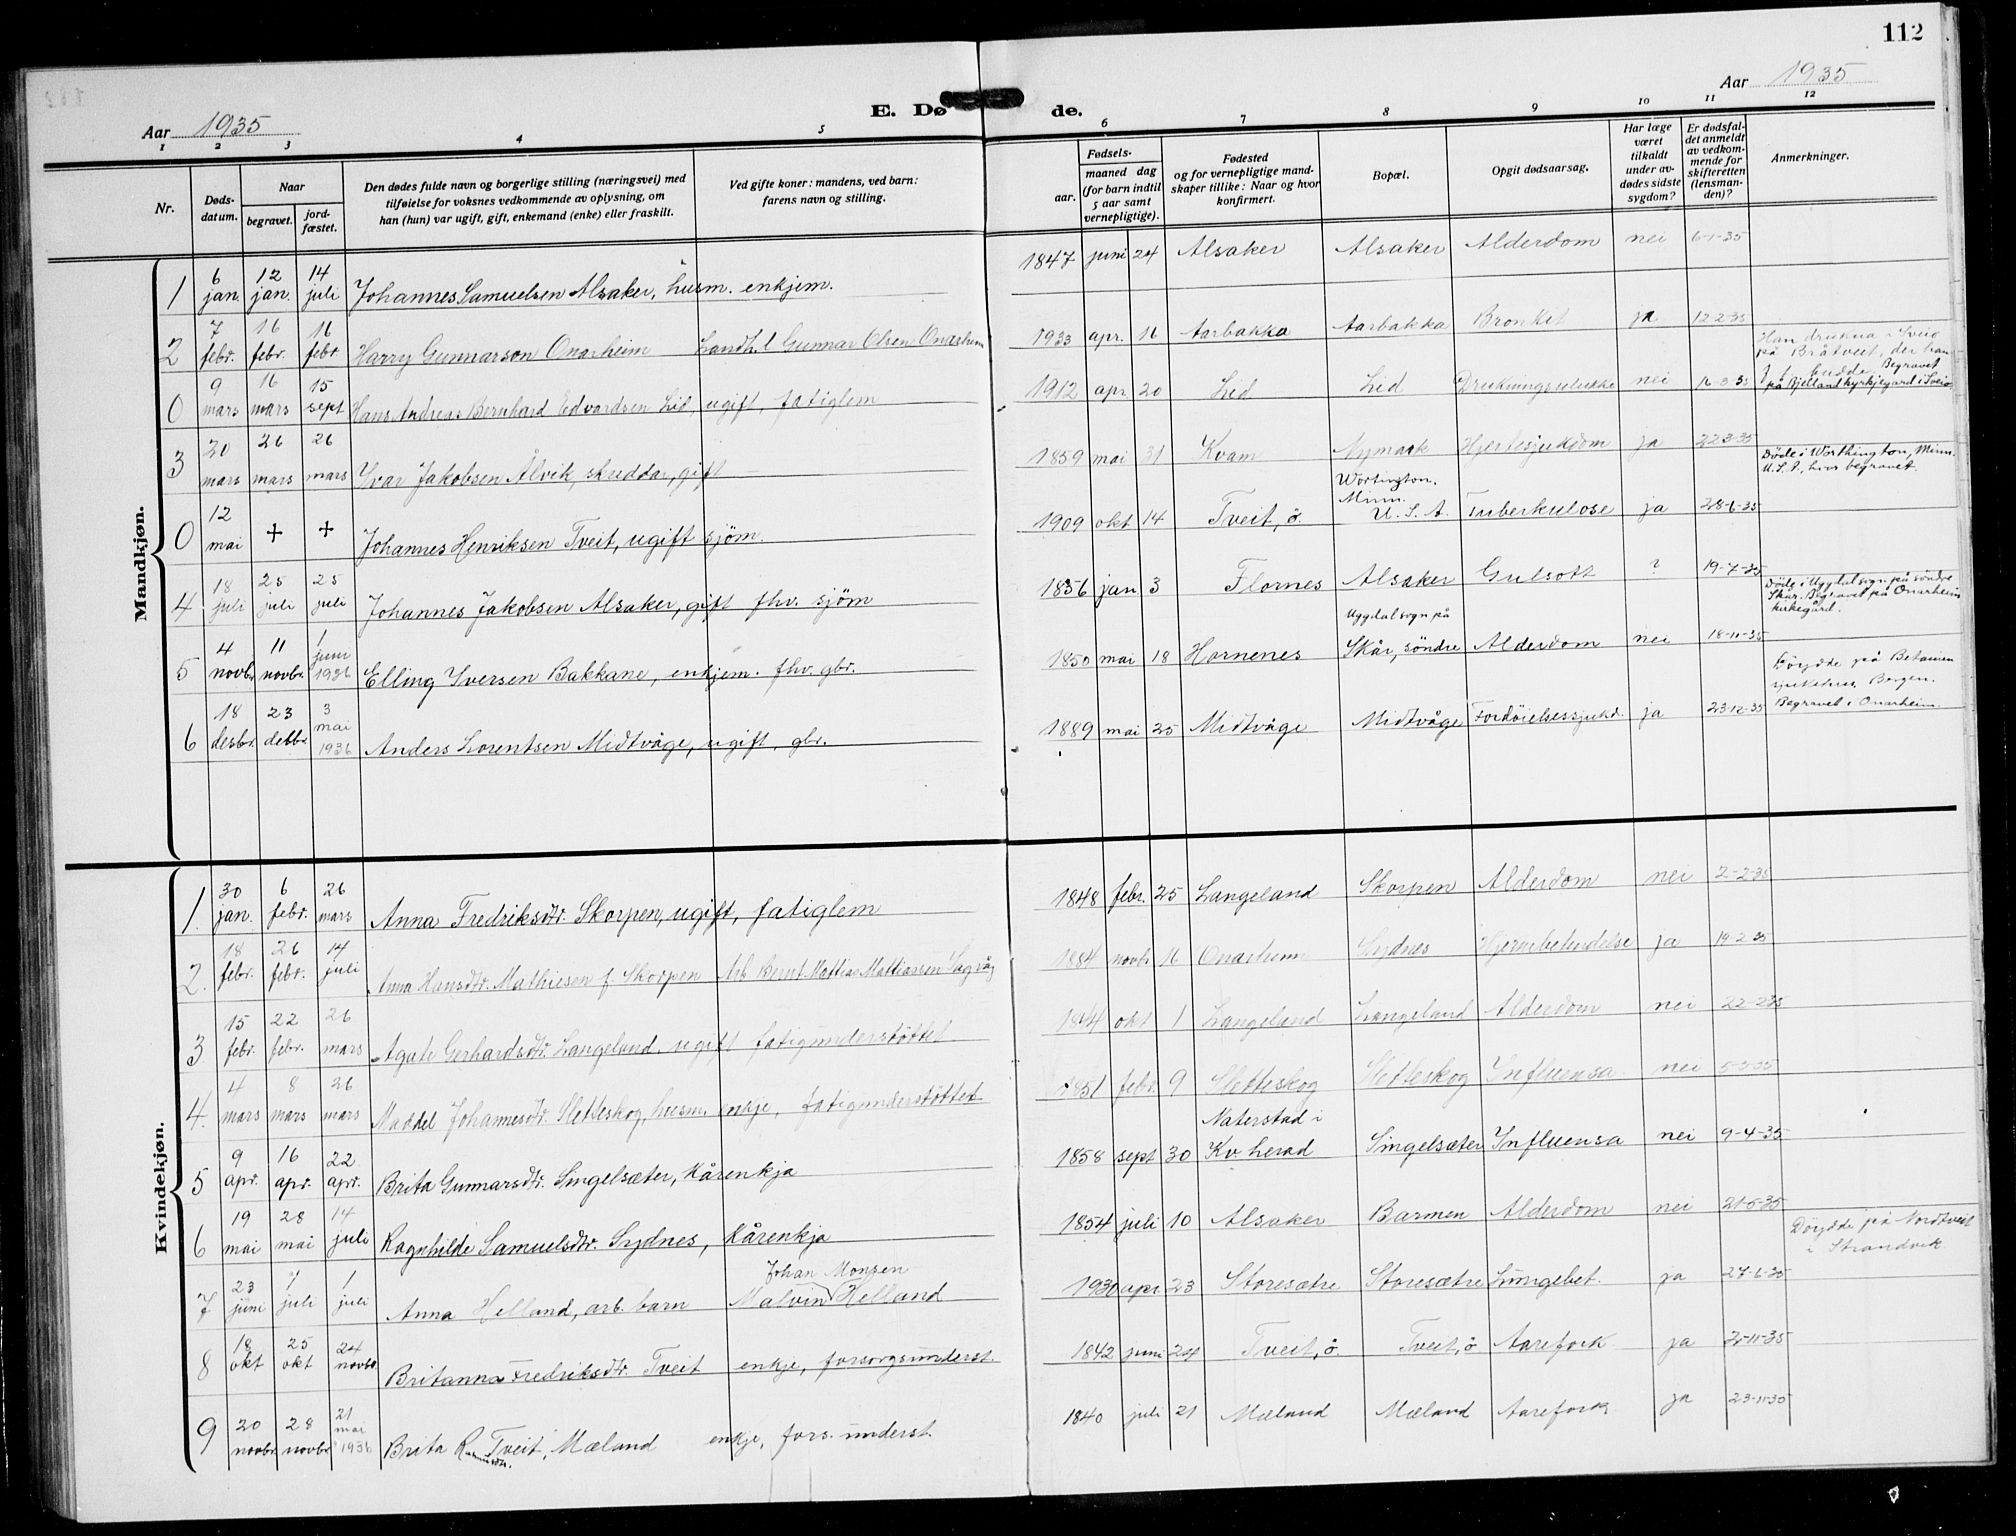 112
Aar 1935
E. Dø de.
Aar 1935
1 2 3 4 5 6 7 8 9 10 11 12
Nr.
Døds-
datum.
Naar
begravet.
jord-
fæstet.
Den dødes fulde navn og borgerlige stilling (næringsvei) med
tilføielse for voksnes vedkommende av oplysning, om
han (hun) var ugift, gift, enkemand (enke) eller fraskilt.
Ved gifte koner: mandens, ved barn:
farens navn og stilling.
Fødsels-
aar.
maaned dag
(for barn indtil
5 aar samt
vernepligtige).
Fødested
og for vernepligtige mand-
skaper tillike: Naar og hvor
konfirmert.
Bopæl.
Opgit dødsaarsag.
Har læge
været
tilkaldt
under av-
dødes sidste
sygdom?
Er dødsfal-
det anmeldt
av vedkom-
mende for
skifteretten
(lensman-
den)?
Anmerkninger.
Mandkjøn.
1 6 jan. 12 jan. 14 juli Johannes Samuelsen Alsaker, husm. enkjem. 1847 juni 24 Alsaker Alsaker Alderdom nei 6-1-35
2 7 febr. 16 febr. 16 febr Harry Gunnarson Onarheim Landh. Gunnar Olsen Onarheim 1933 apr. 16 Aarbakka Aarbakka Bronkit ja 12-2-35
0 9 mars 16 mars 15 sept Hans Andreas Bernhard Edvardsen Lid, ugift, fatiglem 1912 apr 20 Lid Lid Drukningsulukke nei 16-3-35 Han drukna i Sveio
på Bråtveit, der han
budde. Begravet
på Bjelland kyrkjegard i Sveio
3 20 mars 26 mars 26 mars Ivar Jakobsen Ålvik, skreddar, gift 1859 mai 31 Kvam Nymark Hjertesjukdom ja 22-3-35
0 12 mai + + Johannes Henriksen Tveit, ugift sjöm. 1909 okt 14 Tveit, ö. Wortington, Minn. U. S. A. Tuberkulose ja 28-6-35 Døde i Worthington, Minn.
U.S.A, hvor begravet.
4 18 juli 25 juli 25 juli Johannes Jakobsen Alsaker, gift fhv. sjöm 1856 jan 3 Flornes Alsaker Gulsott ? 19-7-35
5 4 novbr. 11 novbr. 1 juni 1936 Elling Iversen Bakkane, enkjem. fhv. gbr. 1850 mai 18 Hornenes Uggdal sogn på Skår, söndre Alderdom nei 18-11-35 Døde i Uggdal sogn på söndre
Skår. Begravet på Onarheim
kirkegård.
6 18 desbr. 23 desbr 3 mai 1936 Anders Lorentsen Midtvåge, ugift, gbr. 1889 mai 25 Midtvåge Midtvåge Fordöielsessjukd. ja 23-12-35 Döydde på Betanien
sjukehus, Bergen.
Begravet i Onarheim.
Kvindekjøn.
1. 30 jan. 6 febr. 26 mars Anna Fredriksdtr. Skorpen, ugift, fatiglem 1848 febr. 25 Langeland Skorpen Alderdom nei 2-2-35
2. 18 febr. 26 febr. 14 juli Anna Hansdtr. Mathiesen f. Skorpen Arb. Bernt Mattias Mattiassen Sagvåg 1884 novbr 16 Onarheim Sydnes Hjernebetendelse ja 19-2-35
3 15 febr. 22 febr. 26 mars Agate Gerhardsdtr. Langeland, ugift fatigunderstöttet okt 1 Langeland Langeland Alderdom nei 22-2-35
4. 4 mars 8 mars 26 mars Maddel Johannesdtr. Sletteskog, husm. enkje, fatigunderstöttet 1851 febr. 9 Sletteskog Sletteskog Influensa nei 5-3-35
5 9 apr. 16 apr. 22 apr. Brita Gunnarsdtr. Singelsæter, Kårenkja 1858 sept 30 Naterstad i Kv. herad Singelsæter Influensa nei 9-4-35
6 19 mai 28 mai 14 juli Ragnhilde Samuelsdtr. Sydnes, Kårenkja 1854 juli 10 Alsaker Barmen Alderdom nei 21-5-35
7 23 juni 1 juli 1 juli Anna Helland, arb. barn Johan Monsen
Malvin Helland 1930 apr. 23 Storesætre Storesætre Lungebet. ja 27-6-35 Döydde på Nordtveit
i Strandvik
8 18 okt 25 okt 24 novbr Britanna Fredriksdtr. Tveit enkje, forsorgsunderst. 1842 juni 24 Tveit, ö Tveit, ö Aarefork. ja 2-11-35
9 20 novbr 28 novbr 21 mai 1936 Brita Rasmusdtr. Tveit, Mæland enkje, fors. underst. 1840 juli 21 Mæland Mæland Aarefork ja 23-11-35